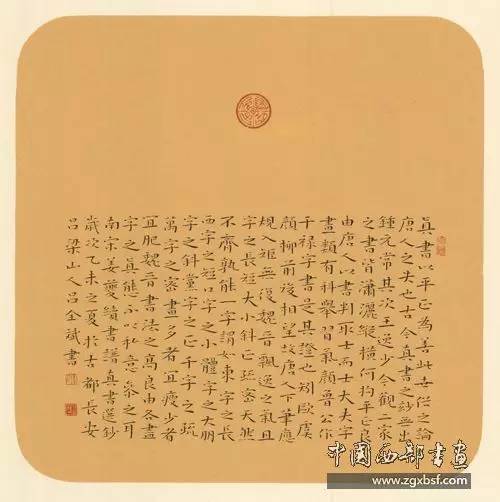 真書以平正為善此世俗之論
唐人之失也古今真書之妙無出
鍾元常其次王逸少今觀二家
之書皆瀟灑縱橫何拘平正良
由唐人以書判取士而士大夫字
畫類有科舉習氣顏魯公作
干祿字書是其證也矧歐虞
顏柳前後相望故唐人下筆應
規入矩無復魏晉飄逸之氣且
字之長短大小斜正疏密天然
不齊孰能一字謂如東字之長
西字之短口字之小體字之大朋
字之斜黨字之正千字之疏
萬字之密畫多者宜瘦少者
宜肥魏晉書法之高良由各盡
字之真態不以私意參之耳
南宋姜夔續書譜真書選鈔
歲次乙未之夏於古都長安
呂梁山人呂全斌書
中国西部書畫
www.zgxbsf.com